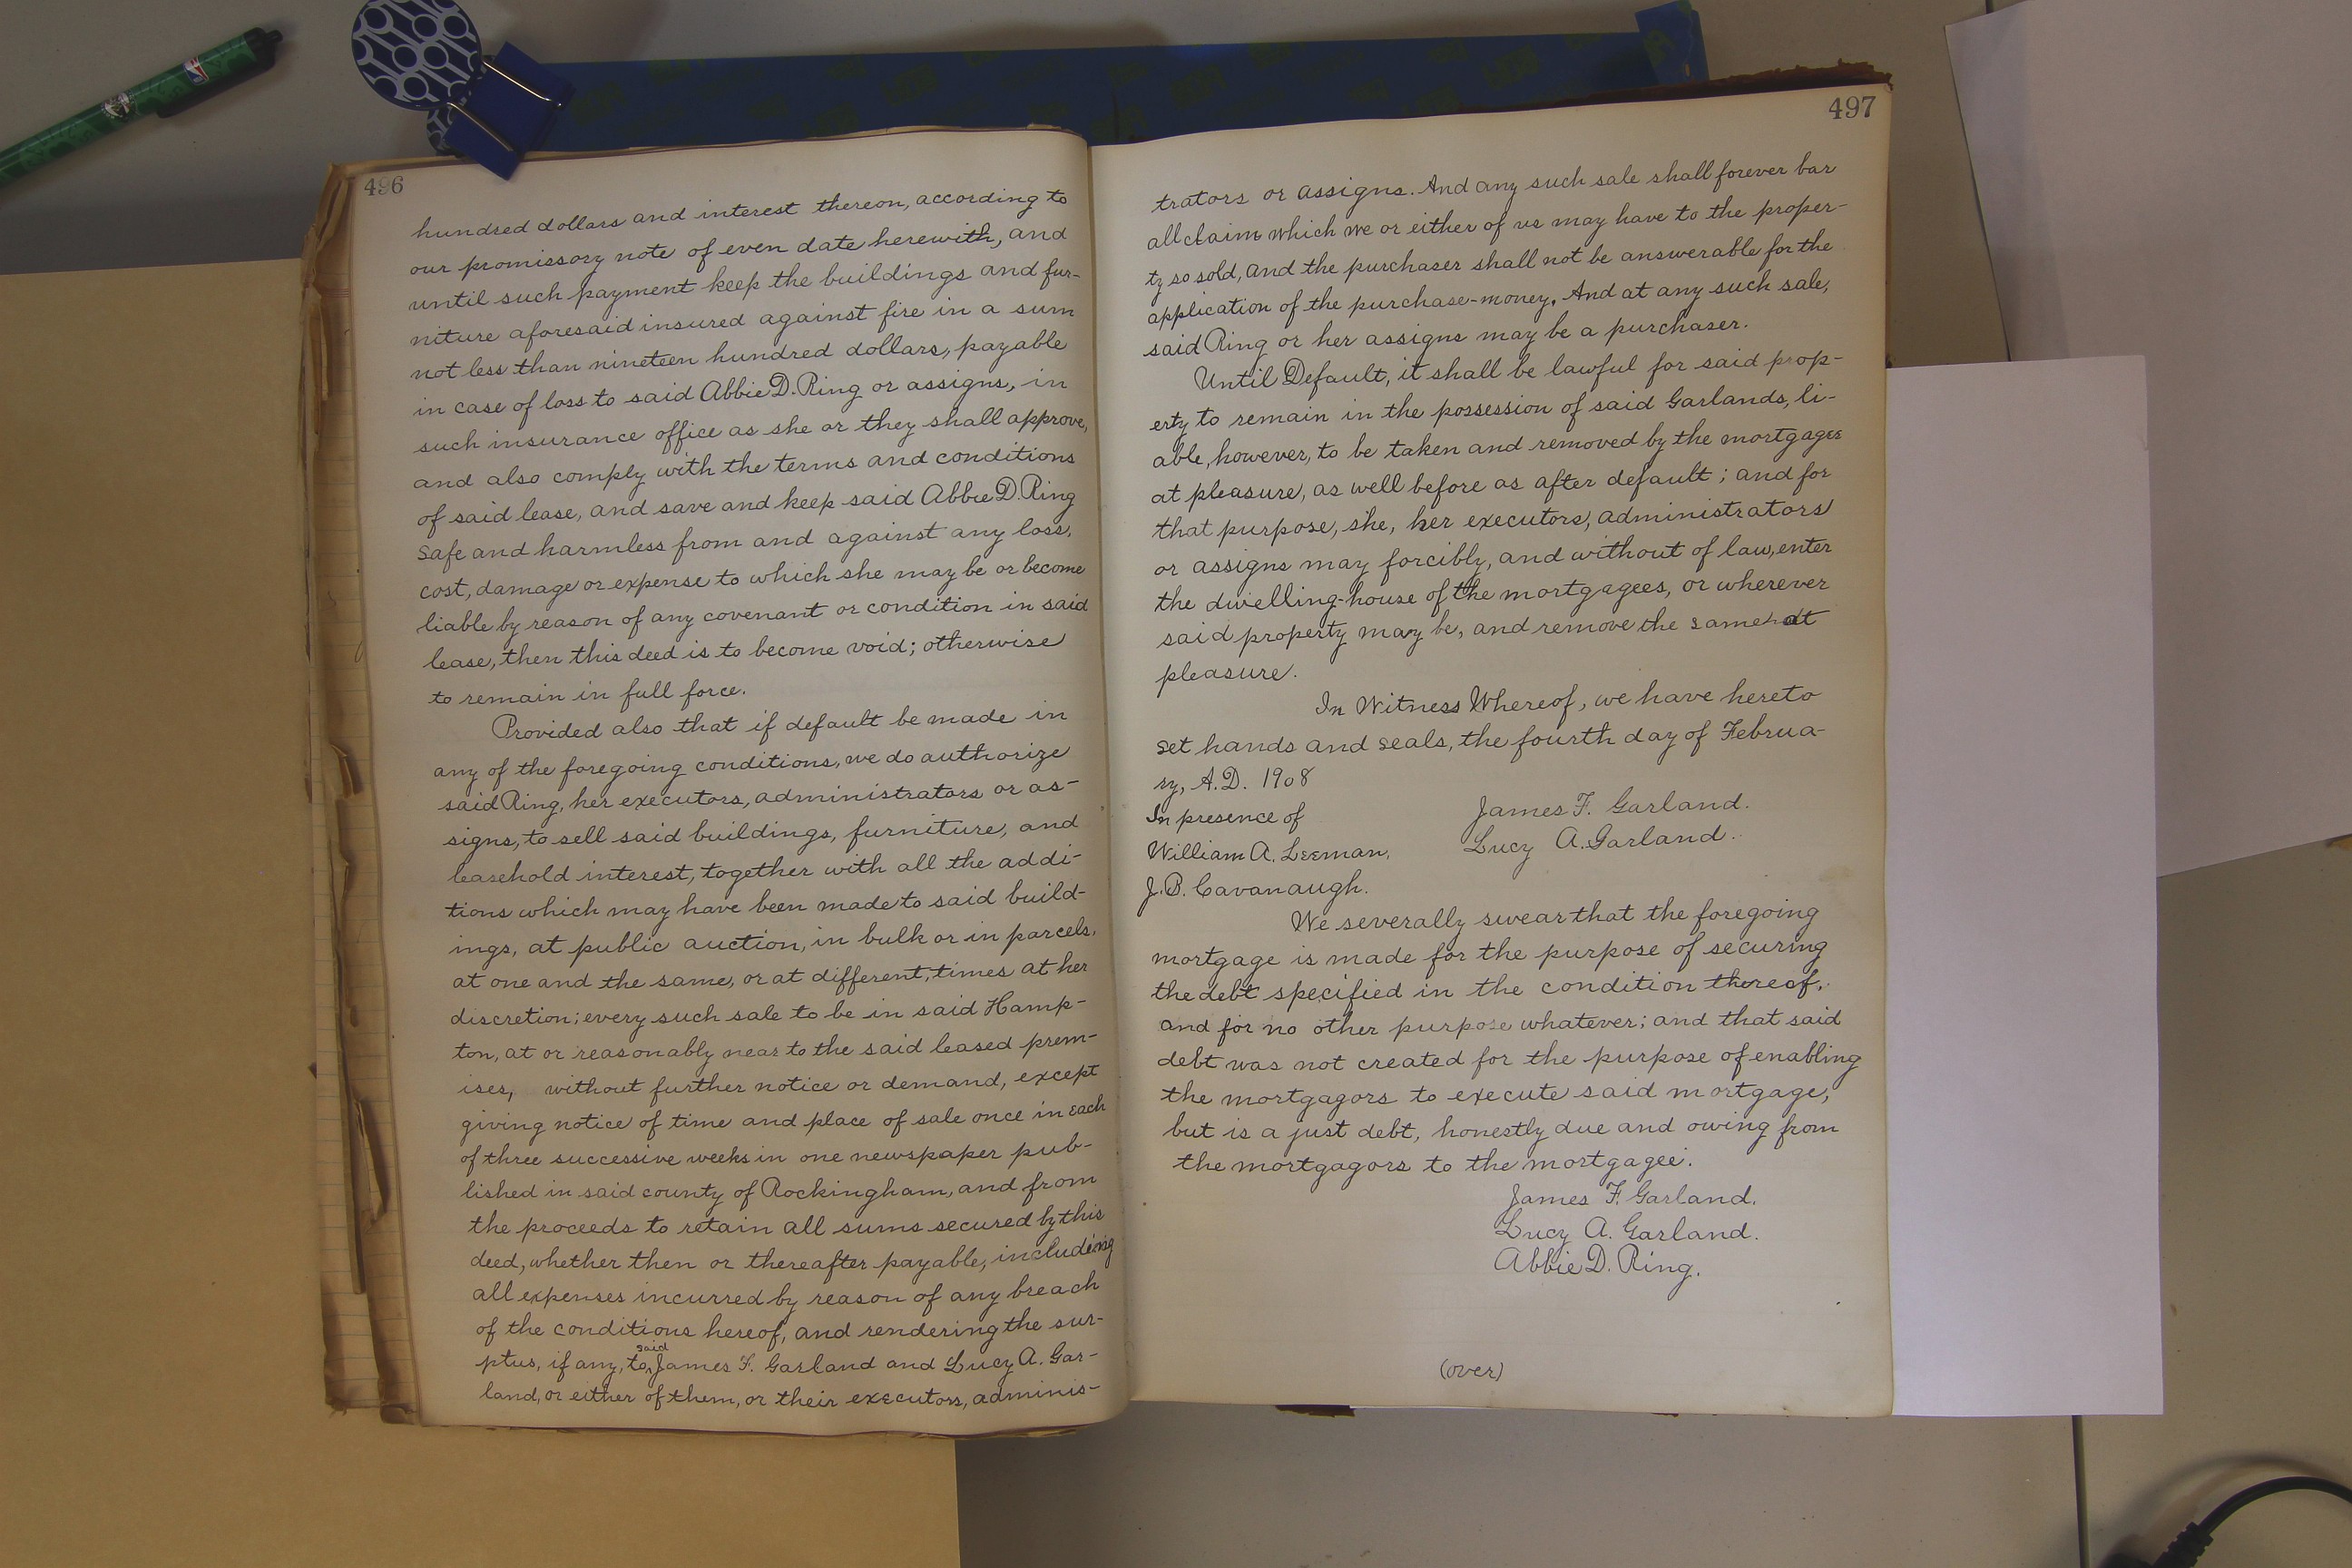 496
hundred dollars and interest thereon, according to
our promissory note of even date herewith, and
until such payment keep the buildings and fur-
niture aforesaid insured against fire in a sum
not less than nineteen hundred dollars, payable
in case of loss to said Abbie D. Ring or assigns, in
such insurance office as she or they shall approve,
and also comply with the terms and conditions
of said lease, and save and keep said Abbie D. Ring
safe and harmless from and against any loss,
cost, damage or expense to which she may be or become
liable by reason of any covenant or condition in said
lease, then this deed is to become void; otherwise
to remain in full force.
Provided also that if default be made in
any of the foregoing conditions, we do authorize
said Ring, her executors, administrators or as-
signs, to sell said buildings, furniture, and
leasehold interest, together with all the addi-
tions which may have been made to said build-
ings, at public auction, in bulk or in parcels,
at one and the same, or at different, times at her
discretion; every such sale to be in said Hamp-
ton, at or reasonably near to the said leased prem-
ises, without further notice or demand, except
giving notice of time and place of sale once in each
of three successive weeks in one newspaper pub-
lished in said county of Rockingham, and from
the proceeds to retain all sums secured by this
deed, whether then or thereafter payable, including
all expenses incurred by reason of any breach
of the conditions hereof, and rendering the sur-
plus, if any, to said James F. Garland and Lucy A. Gar-
land, or either of them, or their executors, adminis-
497
trators or assigns. And any such sale shall forever bar
all claim which we or either of us may have to the proper-
ty so sold, and the purchaser shall not be answerable for the
application of the purchase-money. And at any such sale,
said Ring or her assigns may be a purchaser.
Until Default, it shall be lawful for said prop-
erty to remain in the possession of said Garlands, li-
able, however, to be taken and removed by the mortgagee
at pleasure, as well before as after default; and for
that purpose, she, her executors, administrators
or assigns may forcibly, and without of law, enter
the dwelling-house of the mortgagees, or wherever
said property may be, and remove the same at
pleasure.
In Witness Whereof, we have hereto
set hands and seals, the fourth day of Februa-
ry, A.D. 1908
In presence of
James F. Garland.
William A. Leeman,
Lucy A. Garland.
J. B. Cavanaugh.
We severally swear that the foregoing
mortgage is made for the purpose of securing
the debt specified in the condition thereof,
and for no other purpose whatever; and that said
debt was not created for the purpose of enabling
the mortgagors to execute said mortgage,
but is a just debt, honestly due and owing from
the mortgagors to the mortgagee.
James F. Garland.
Lucy A. Garland.
Abbie D. Ring.
(over)